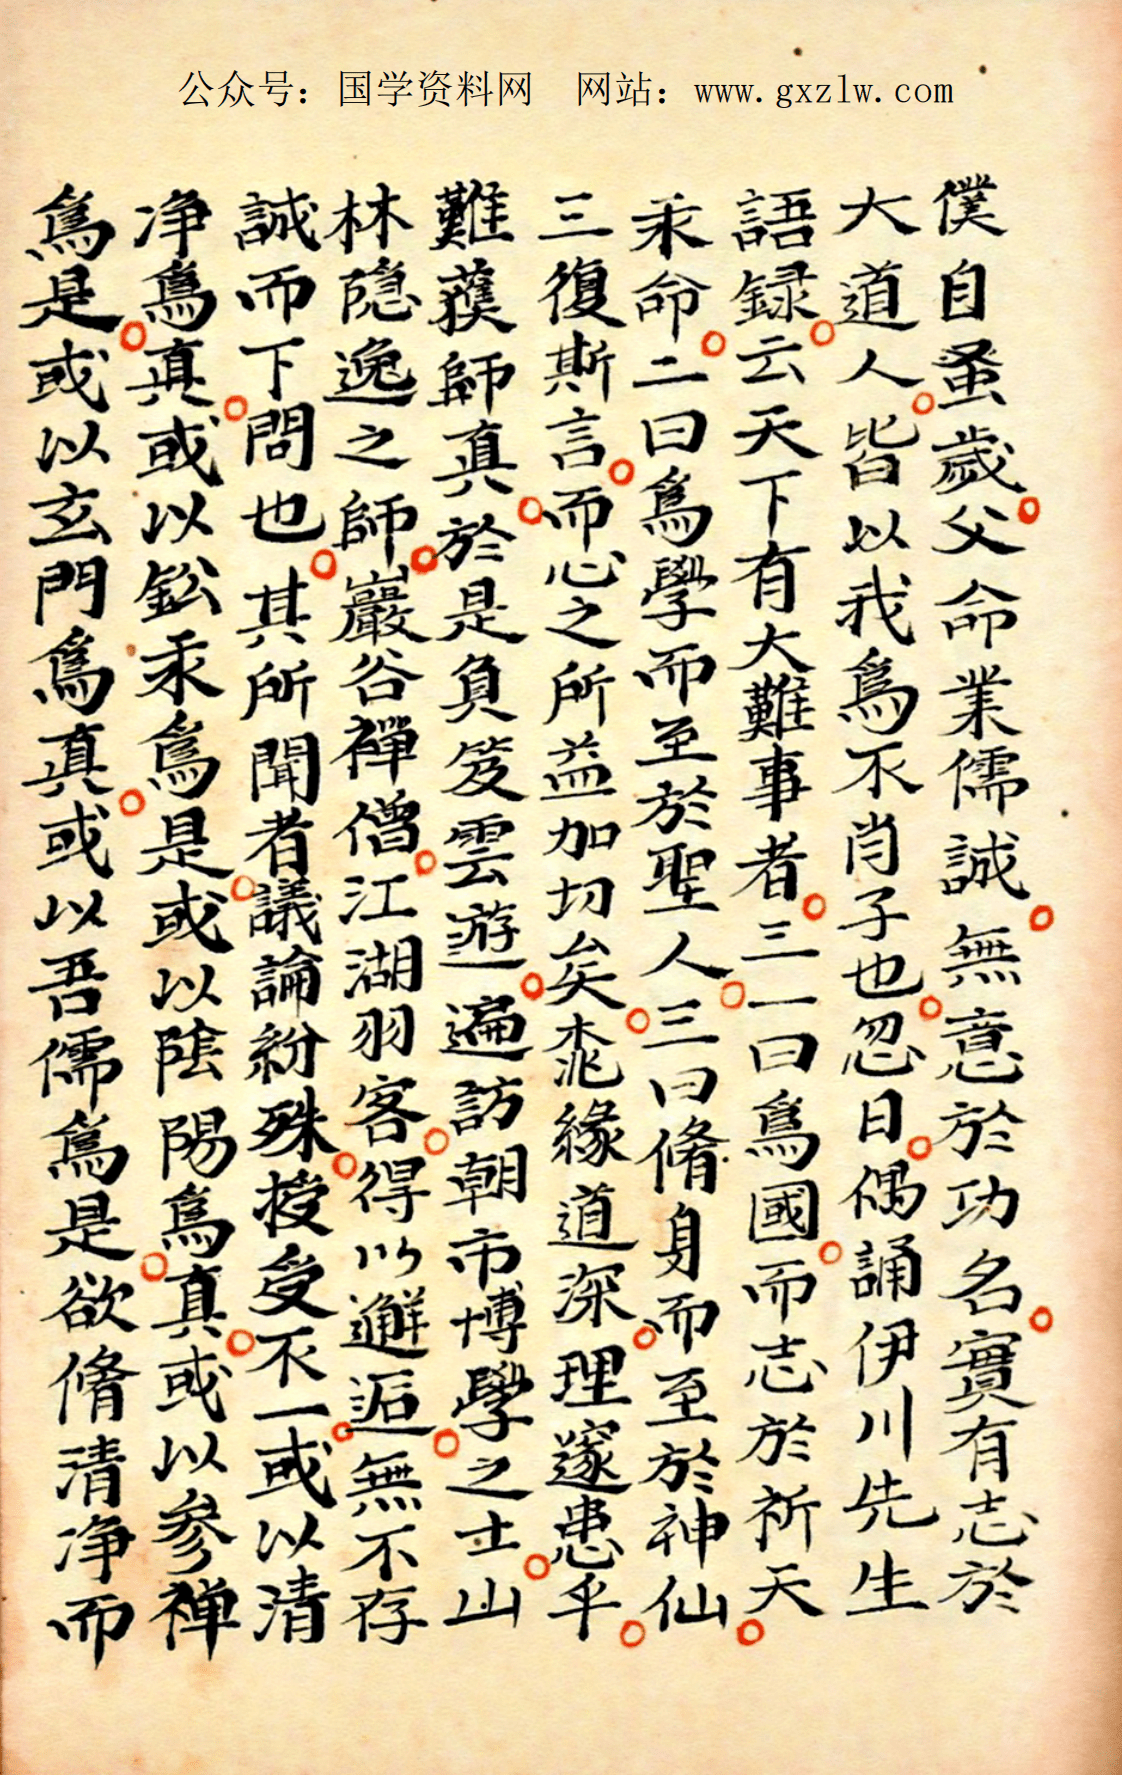 公众号：国学资料网　网站：www.gxzlw.com
僕自蚤歲父命業儒誠無意於功名實有志於
大道人皆以我爲不肖子也忽日偶誦伊川先生
語録云天下有大難事者三一曰爲國而志於祈天
永命二曰爲學而至於聖人三曰脩身而至於神仙
三復斯言而心之所益加切矣柰緣道深理邃患乎
難蔑師真於是負笈雲遊遍訪朝市博學之士山
林隐逸之師巖谷禪僧江湖羽客得以邂逅無不存
誠而下問也其所聞者議論紛殊授受不一或以清
净爲真或以鈆汞爲是或以陰陽爲真或以參禅
爲是或以玄門爲真或以吾儒爲是欲脩清净而